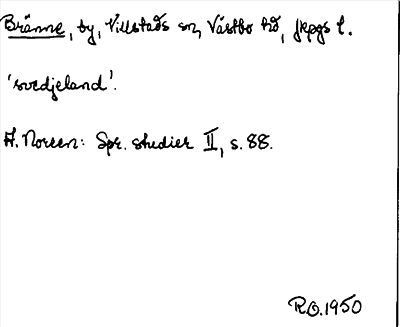 Bränne, by, Villstads sn, Västbo hd, Jkpgs l.
'svedjeland'.
A. Noreen: Spr. studier II, s. 88.
R.O. 1950